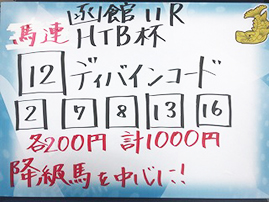 函館11R
馬連 HTB杯
12 ディバインコード
2 7 8 13 16
各200円 計1000円
降級馬を中心に!!